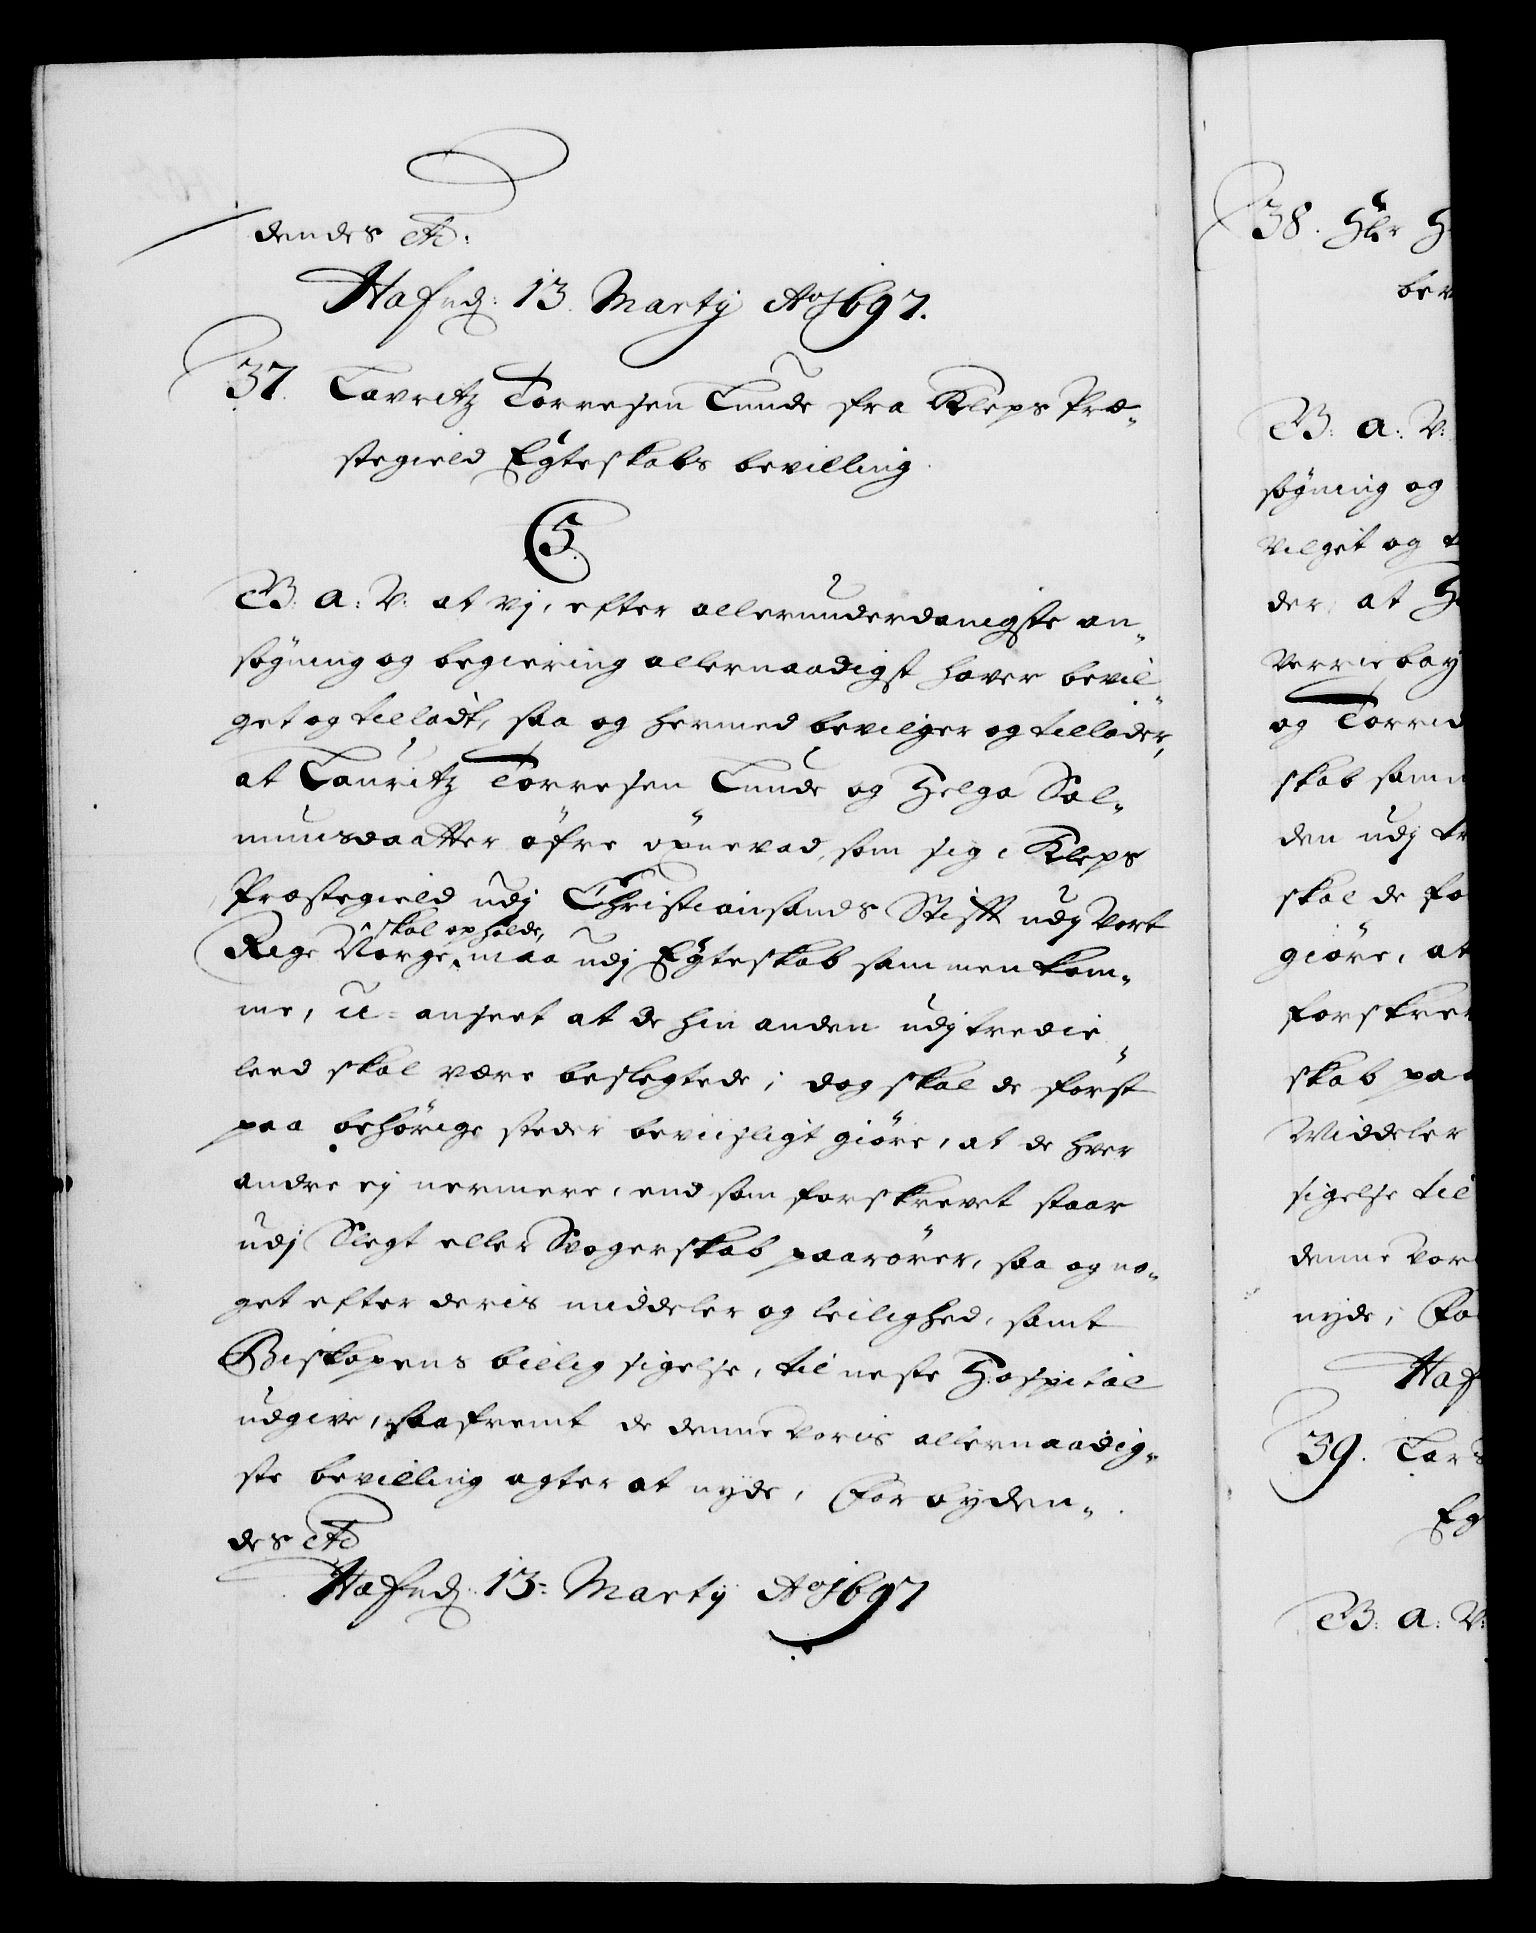 dendes etc:
Hafnd: 13. Martij Ao 1697.
37. Lavritz Torresen Lunde fra Kleps Præ-
stegield Egteskabs bevilling.
C5.
B: a: V: at vj, efter allerunderdanigste an-
søgning og begiering allernaadigst haver bevil-
get og tilladt, saa og hermed bevilger og tillader,
at Lauritz Torresen Lunde og Helga Sal-
munsdaatter öfre öxnevad, som sig i Kleps
Præstegield udj Christiansands Stift udj Vort
Rige Norge skal opholde, maa udj Egteskab sammen kom-
me, u-anseet at de hin anden udj tredie
leed skal være beslegtede; dog skal de først
paa behörige steder beviisligt giöre, at de hver
andre ej nermere, end som forskrevet staar
udj Slegt eller Svogerskab paarörer, saa og no-
get efter deris middeler og leilighed, samt
Biskopens billig sigelse, til neste Hospital
udgive, saafremt de denne voris allernaadig-
ste bevilling agter at nyde, Forbyden-
des etc
Hafnd: 13= Martij Ao 1697
38. Hr
B: a: V:
søgning og
vilget og
der, at
og
skab
den udj
skal de
giöre, at
skab
Middeler
sigelse til
denne
nyde;
39.
B: a: V: